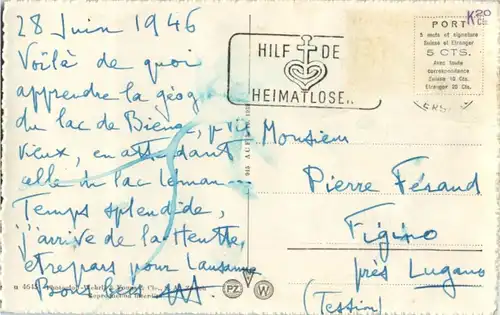 28 Juin 1946
Voilà de quoi
apprendre la géog
du lac de Bienne,
vieux, en attendant
celle du lac Léman...
Temps splendide,
j'arrive de la Heutte,
et repars pour Lausanne
Bons
HILF DE
HEIMATLOSE
K 20
Cts
PORT
5 mots et signature
Suisse et Etranger
5 CTS.
Avec toute
correspondance
Suisse 10 Cts.
Etranger 20 Cts.
Monsieur
Pierre Féraud
Figino
près Lugano
(Tessin)
PZ W